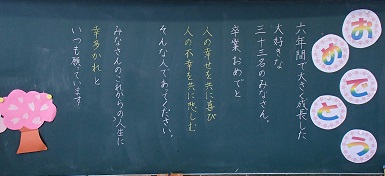 おめでとう
六年間で大きく成長した
大好きな
三十三名のみなさん。
卒業おめでとう
人の幸せを共に喜び
人の不幸を共に悲しむ
そんな人であってください。
みなさんのこれからの人生に
幸多かれと
いつも願っています